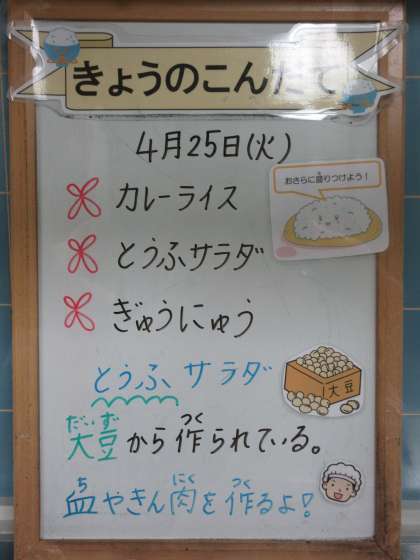 きょうのこんだて
4月25日(火)
カレーライス
おさらに盛りつけよう!
とうふサラダ
ぎゅうにゅう
とうふサラダ
大豆
だいず つく
大豆から作られている。
ち にく つく
血やきん肉を作るよ!